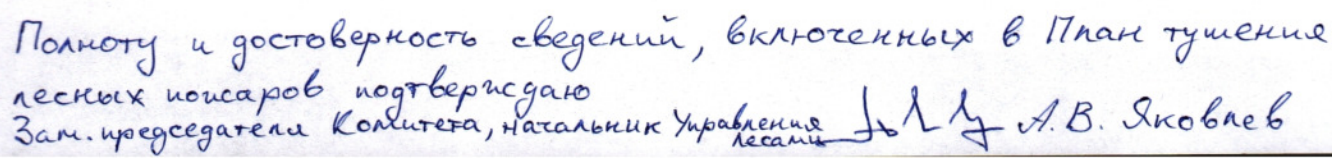 Полноту и достоверность сведений, включенных в План тушения
лесных пожаров подтверждаю
Зам. председателя Комитета, начальник Управления
лесами А.В. Яковлев